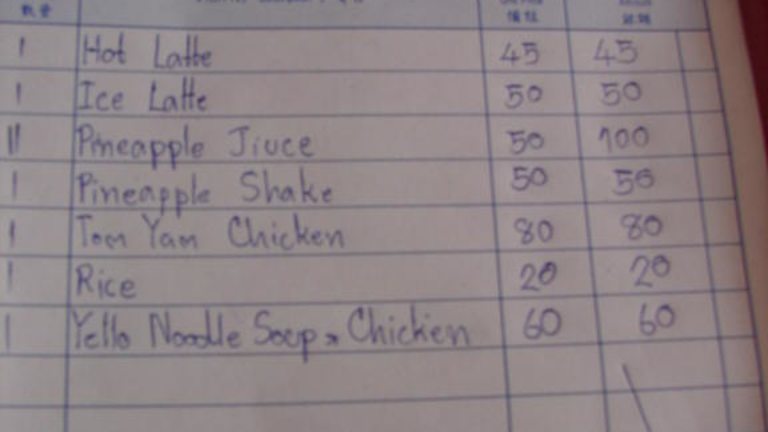 數量
1 Hot Latte 45 45
1 Ice Latte 50 50
11 Pineapple Jiuce 50 100
1 Pineapple Shake 50 50
1 Tom Yam Chicken 80 80
1 Rice 20 20
1 Yello Noodle Soup Chicken 60 60